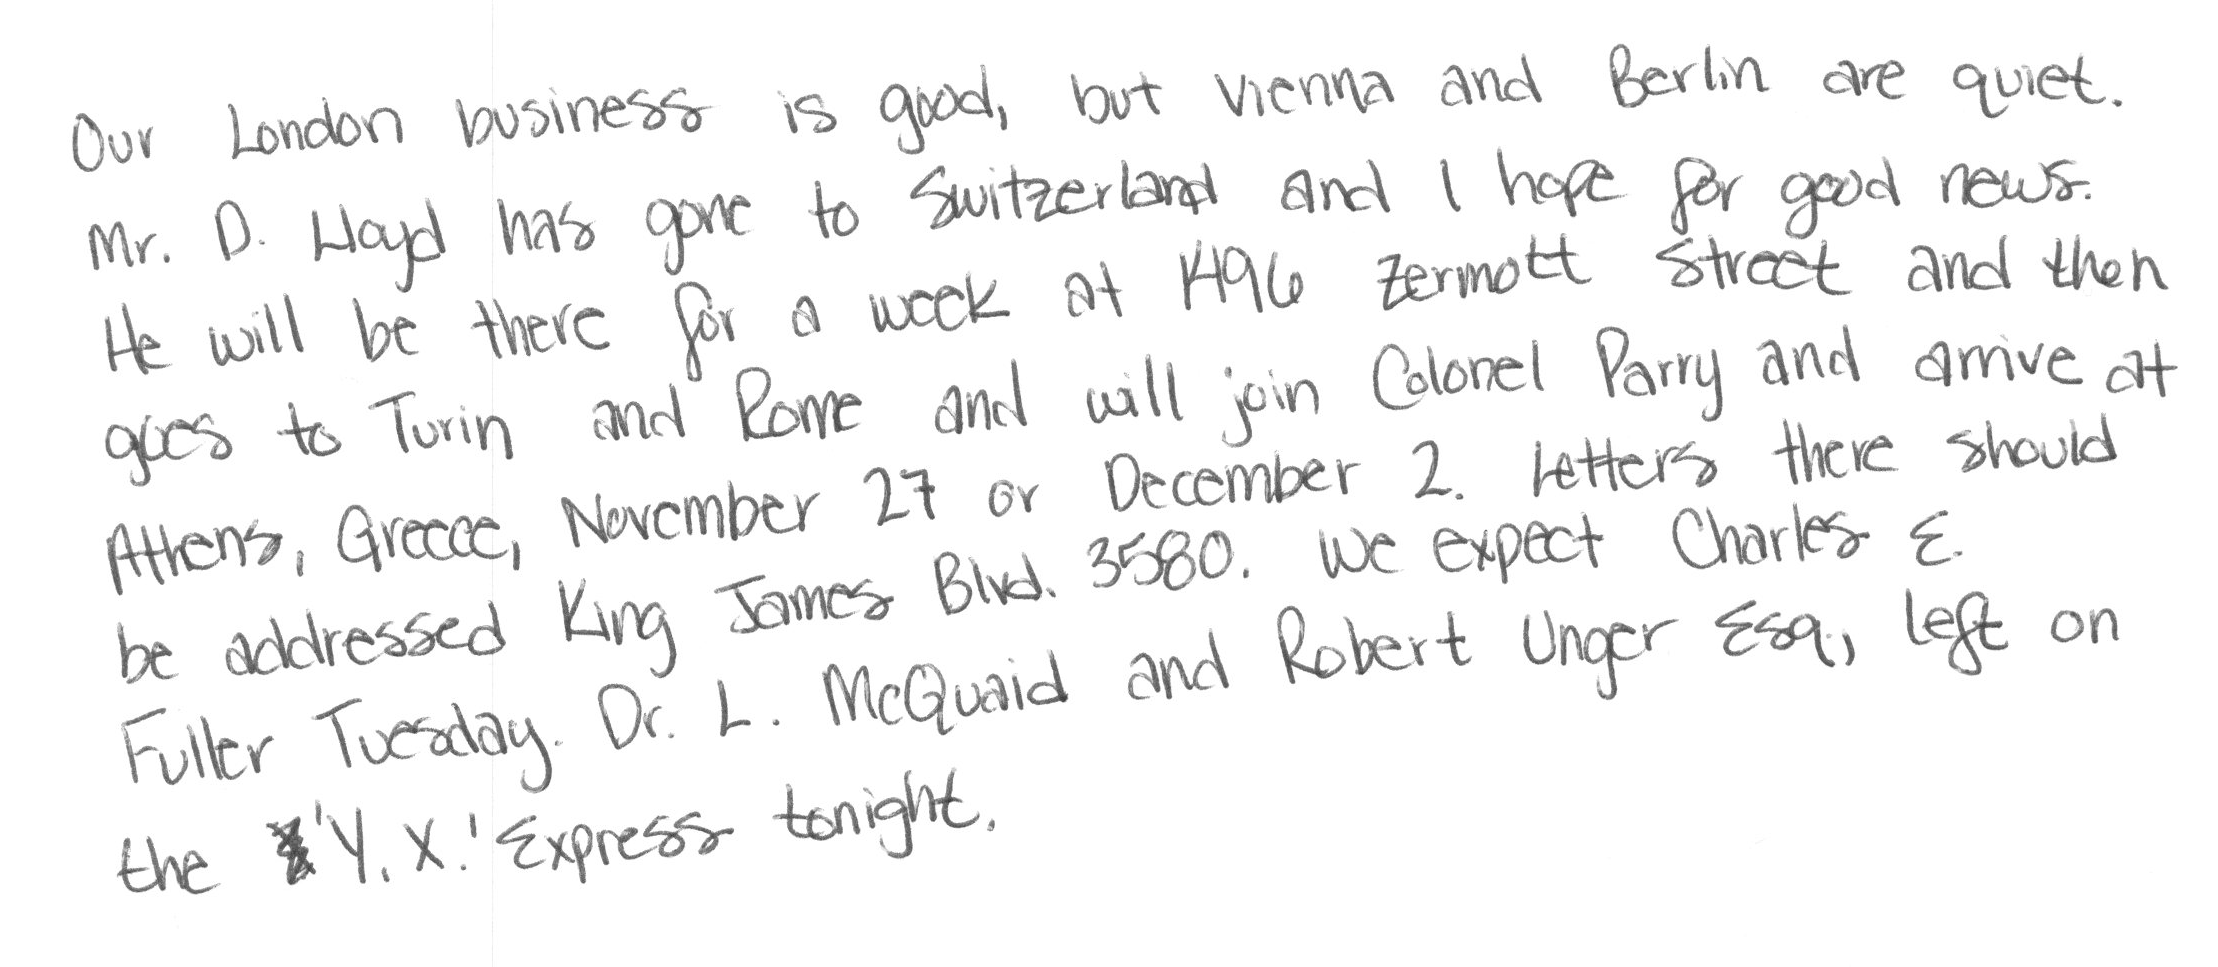 Our London business is good, but Vienna and Berlin are quiet.
Mr. D. Lloyd has gone to Switzerland and I hope for good news.
He will be there for a week at 1496 Zermott Street and then
goes to Turin and Rome and will join Colonel Parry and arrive at
Athens, Greece, November 27 or December 2. Letters there should
be addressed King James Blvd. 3580. We expect Charles E.
Fuller Tuesday. Dr. L. McQuaid and Robert Unger Esq., left on
the 'Y. X.' Express tonight.